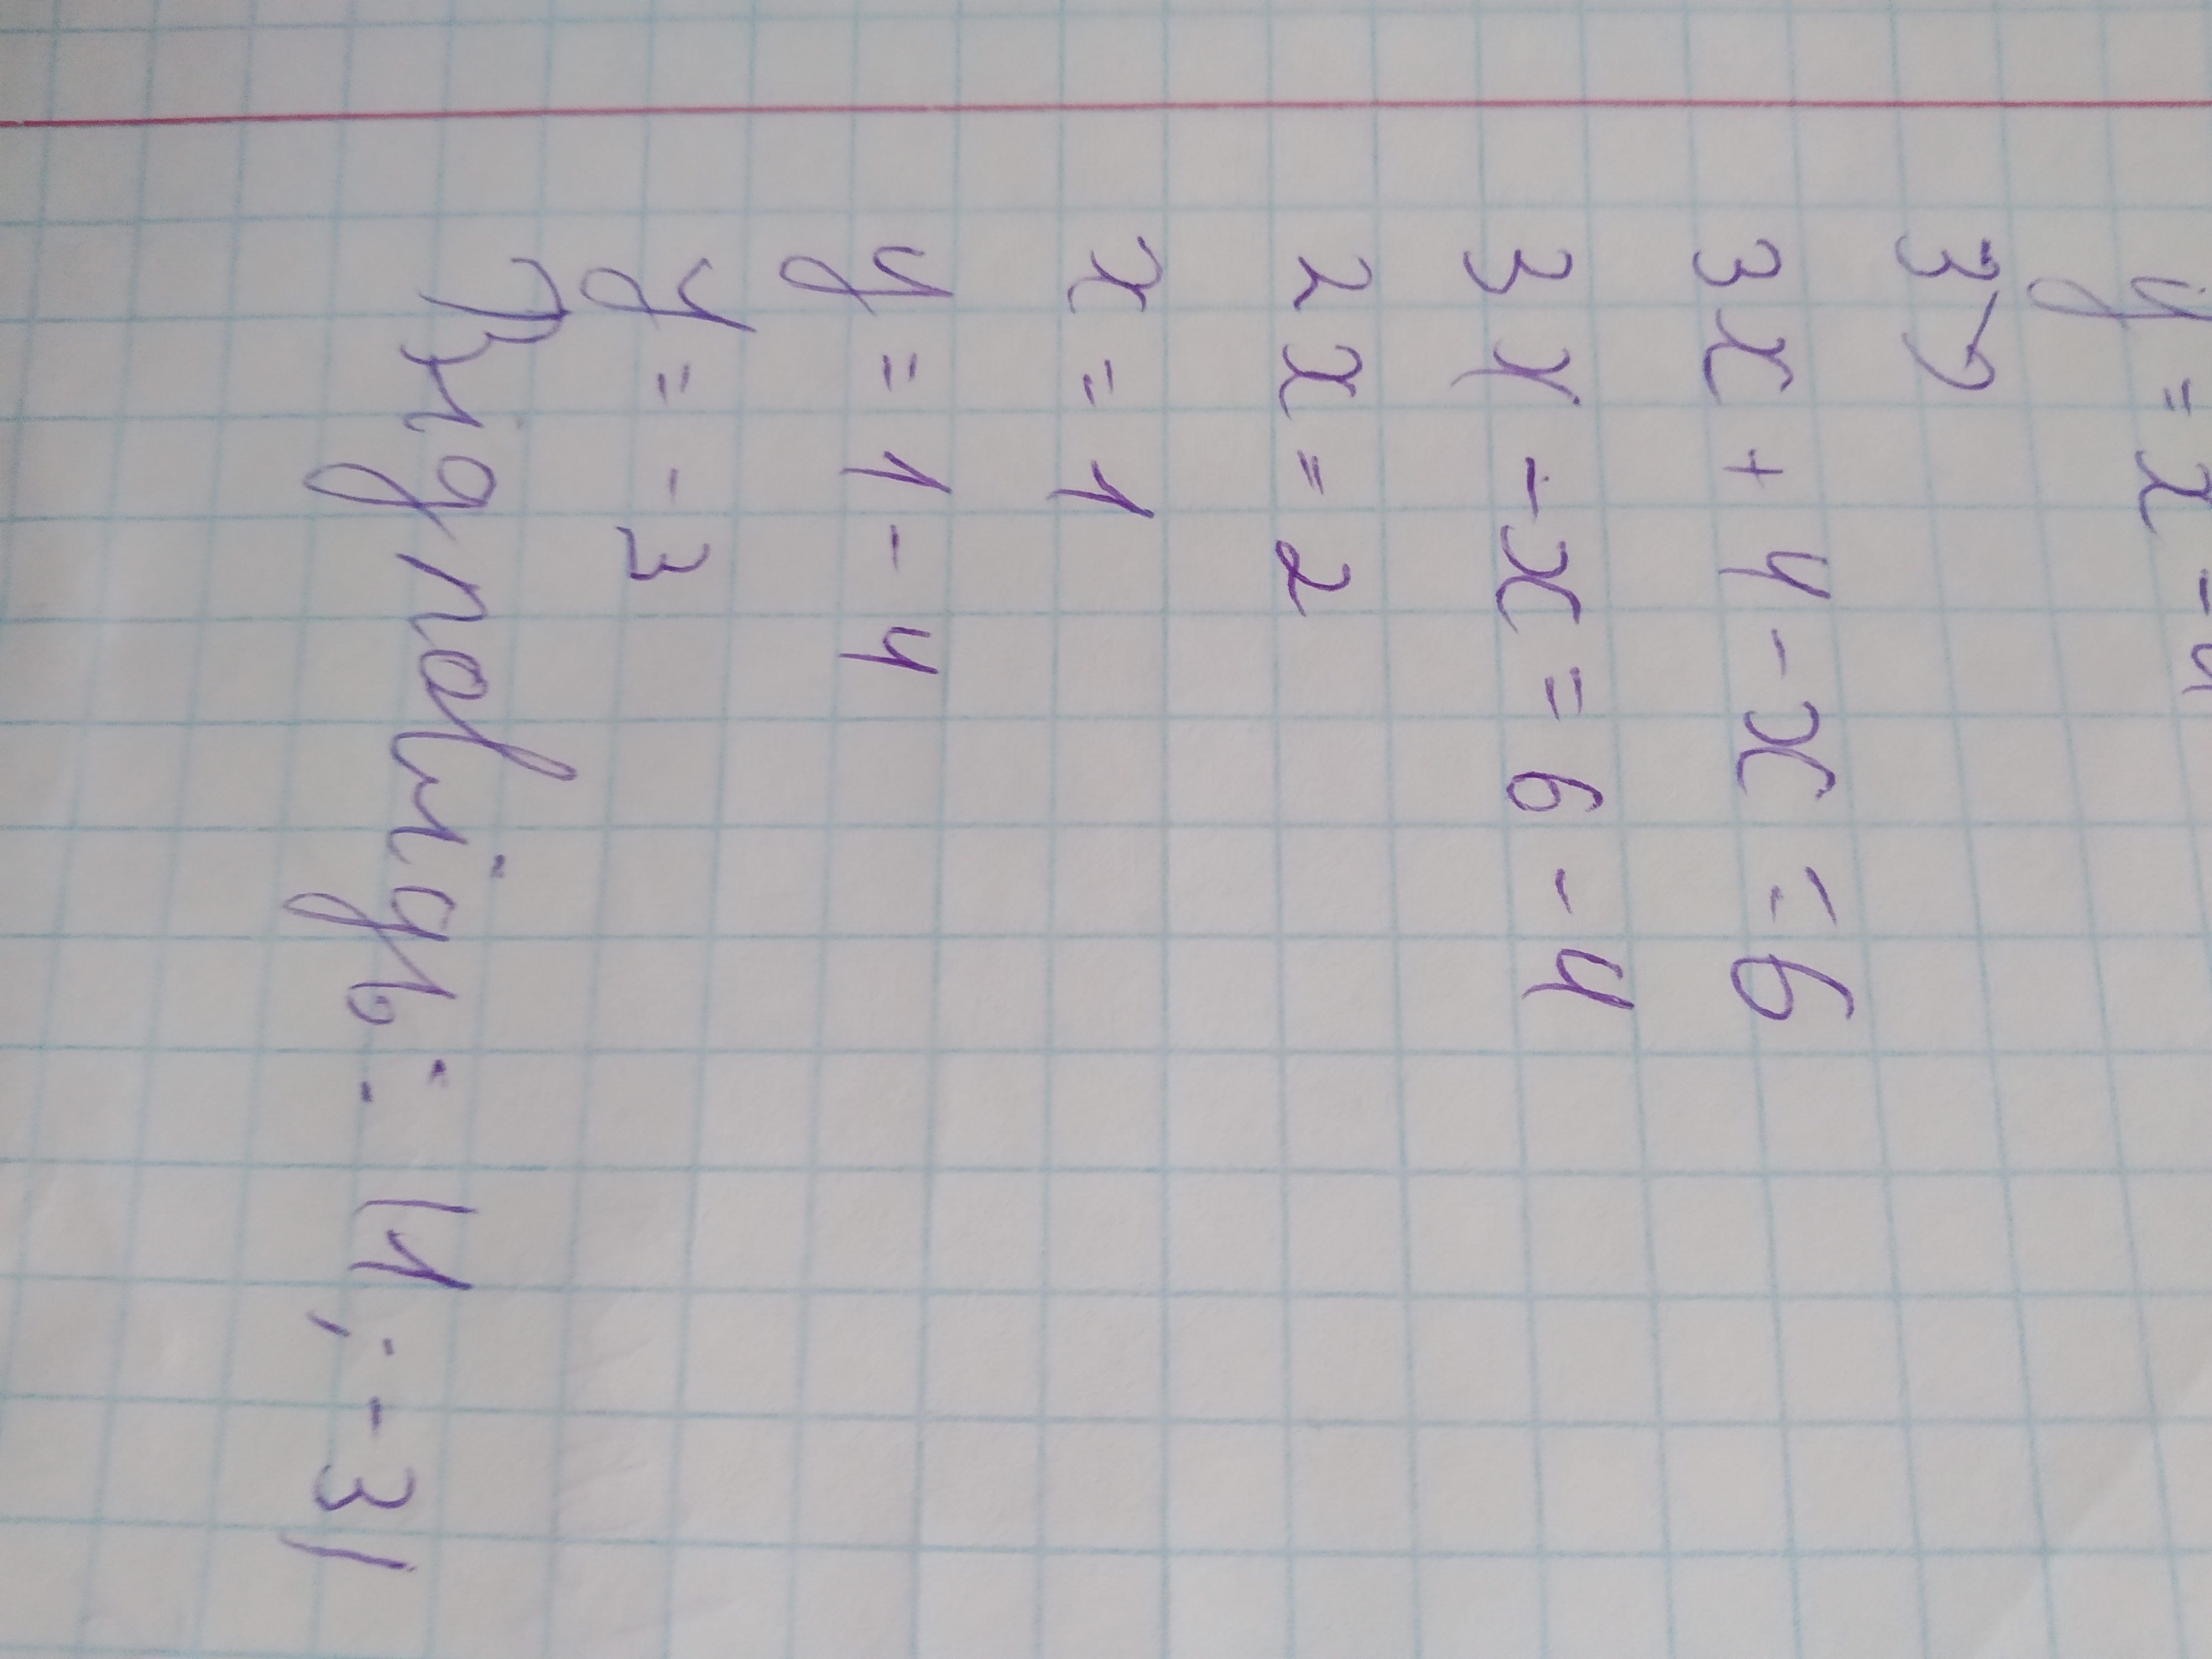 y = x -
3
3x + 4 - x = 6
3x - x = 6 - 4
2x = 2
x = 1
y = 1 - 4
y = -3
Відповідь: (1; -3)